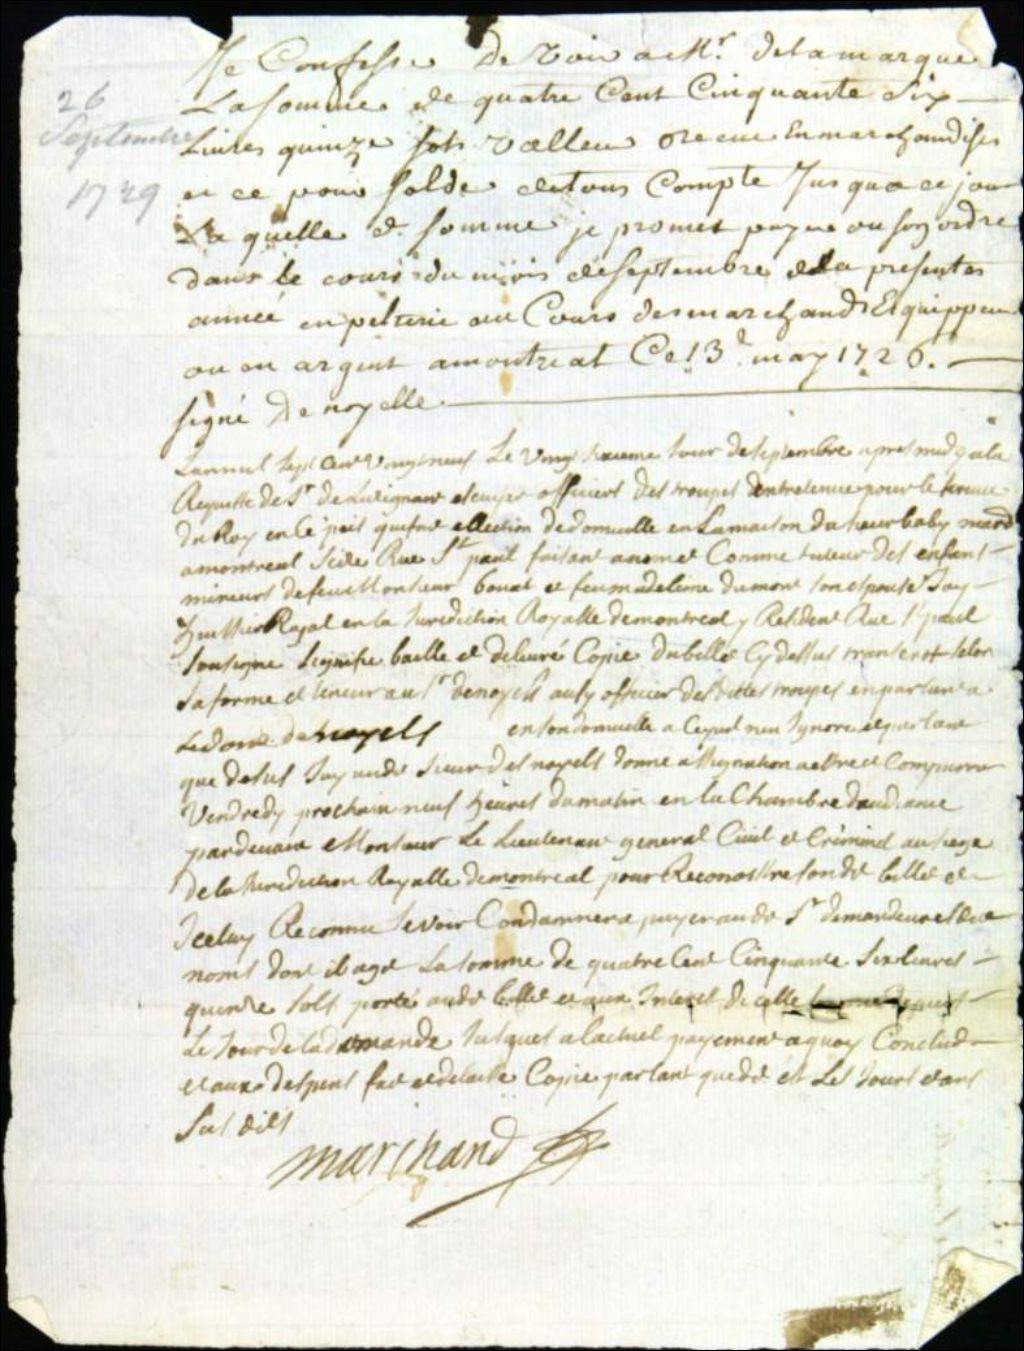 26
Septembre
1729
Je Confesse de voir a Mr. delamarque
La somme de quatre Cent Cinquante Six
Livres quinze sols valleur recue En marchandises
et ce pour solde detous Compte Jusqua ce jour
La quelle d. somme je promet payer ou son ordre
dans le cours du mois de septembre de la presentes
année en pelterie au Cours desmarchands Equippeur
ou en argent amontreal Ce 13e. may 1726.
signé De noyelle
Lanmil Sept Cent Vingtneuf Le Vingt sixieme Jour deseptembre apres midy ala
Requeste de Sr. de Lusignant escuyer officiers des troupes dentretenue pour le service
du Roy en Ce peis quifait ellection dedomicille en Lamaison du sieur baby marcd
amontreal Scize Rue St. paul faisant anom et Comme tuteur des enfant
mineurs defeu Monsieur bouat et feu madeleine dumont son espouse Jay
huissier Royal en la Juridiction Royalle demontreal y Resident Rue St paul
Sousigne Signifie baille et delivré Copie dubillet Cy dessus transcrit selon
Saforme et teneur au Sr. denoyels aussy officier desdittes troupes enparlant a
Ledame denoyels ensondomicille a Cequil nen Ignore et parlant
que desus Jay audt Sieur des noyells donné assignation a estre et Comparoir
Vendredy prochain neuf heures dumatin en la Chambre daudiance
pardevant Monsieur Le Lieutenant general Civil et Criminel ausiege
de la Juridiction Royalle demontreal pour Reconoistre sondt billet et
Iceluy Reconnu Sevoir Condamner a payer audt Sr. demandeur esdt
noms dont il agit La somme de quatre Cent Cinquante Six livres
quinze Sols porté audt billet et aux Interest de celle
Le Jour de la demande Jusques alactuel payement aquoy Conclud
et aux despens fait et delaisse Copie parlant que dt est Les Jours et ans
Sus dits
marchand